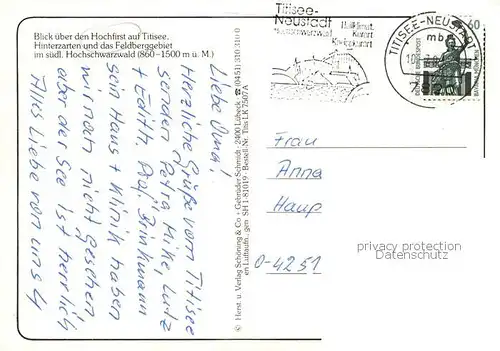 Blick über den Hochfirst auf Titisee,
Hinterzarten und das Feldberggebiet
im südl. Hochschwarzwald (860–1500 m ü. M.)
Liebe Oma!
Herzliche Grüße vom Titisee
senden Petra, Mike, Lutz
+ Edith. Prof. Brinkmann
sein Haus + Klinik haben
wir noch nicht gesehen
aber der See ist herrlich
Alles Liebe von uns 4
© Herst. u. Verlag Schöning & Co + Gebrüder Schmidt · 2400 Lübeck ☎ (0451) 310 310
en Luftaufn. gen SH 1-81019 · Bestell-Nr. Tits LK 7507 A
Titisee-
Neustadt
Hochschwarzwald
Heilklimat.
Kurort
Kneippkurort
TITISEE-NEUSTADT
mb
60
Frau
Anna
Haup
O-4251
privacy protection
DATENSCHUTZ